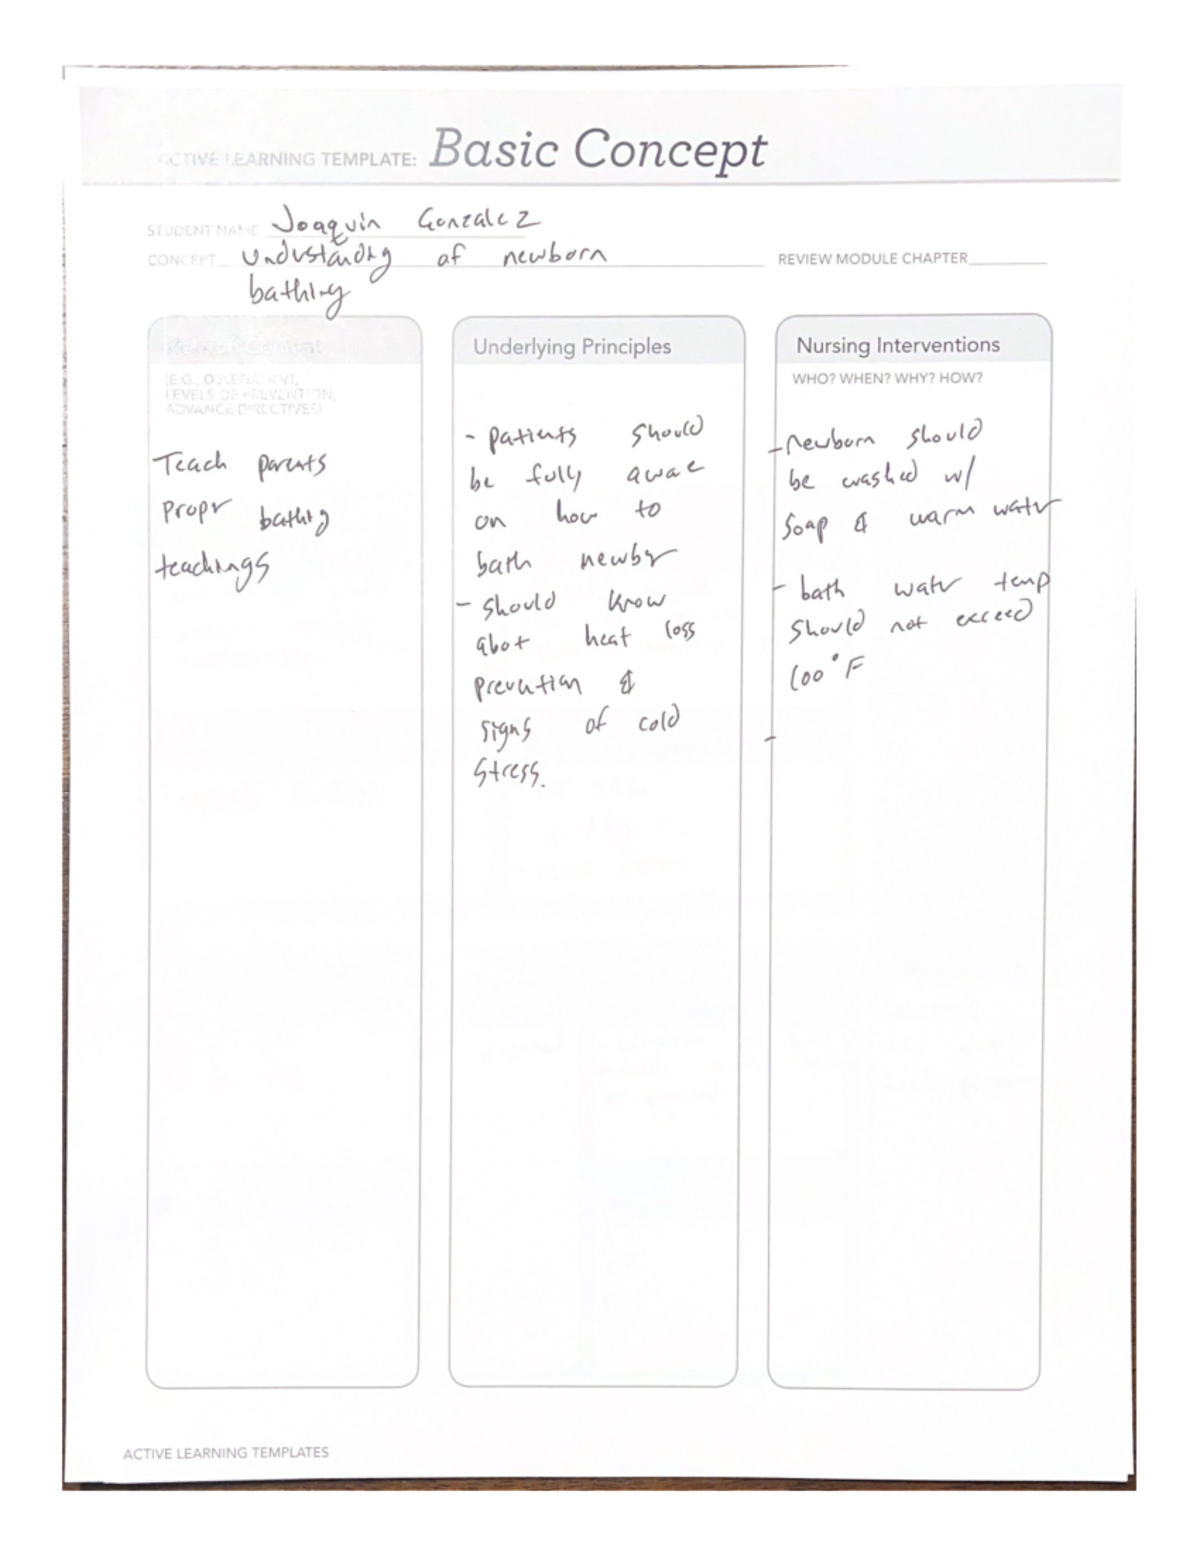 ACTIVE LEARNING TEMPLATE: Basic Concept
STUDENT NAME Joaquin Gonzalez
CONCEPT understanding of newborn
bathing
REVIEW MODULE CHAPTER
Related Content
(E.G., DELEGATION,
LEVELS OF PREVENTION,
ADVANCE DIRECTIVES)
Teach parents
propr bathing
teachings
Underlying Principles
- patients should
be fully awae
on how to
bath newbr
- should know
abot heat loss
prevention &
signs of cold
stress.
Nursing Interventions
WHO? WHEN? WHY? HOW?
- newborn should
be washed w/
soap & warm water
- bath watr temp
should not exceed
100°F
-
ACTIVE LEARNING TEMPLATES